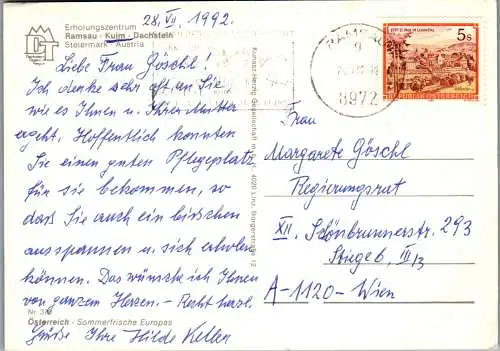 Erholungszentrum
Ramsau - Kulm - Dachstein
Steiermark - Austria
28. VII. 1992.
Liebe Frau Göschl!
Ich denke sehr oft an Sie
wie es Ihnen u. Ihrer Mutter
ergeht. Hoffentlich konnten
Sie einen guten Pflegeplatz
für sie bekommen, so
daß Sie auch ein bißchen
ausspannen u. sich erholen
können. Das wünsche ich Ihnen
von ganzem Herzen. - Recht herzl.
Grüße Ihre Hilde Keller
Österreich - Sommerfrische Europas
4020 Linz
RAMSAU
8972
5s
Frau
Margarete Göschl
Regierungsrat
XII. Schönbrunnerstr. 293
A-1120-Wien